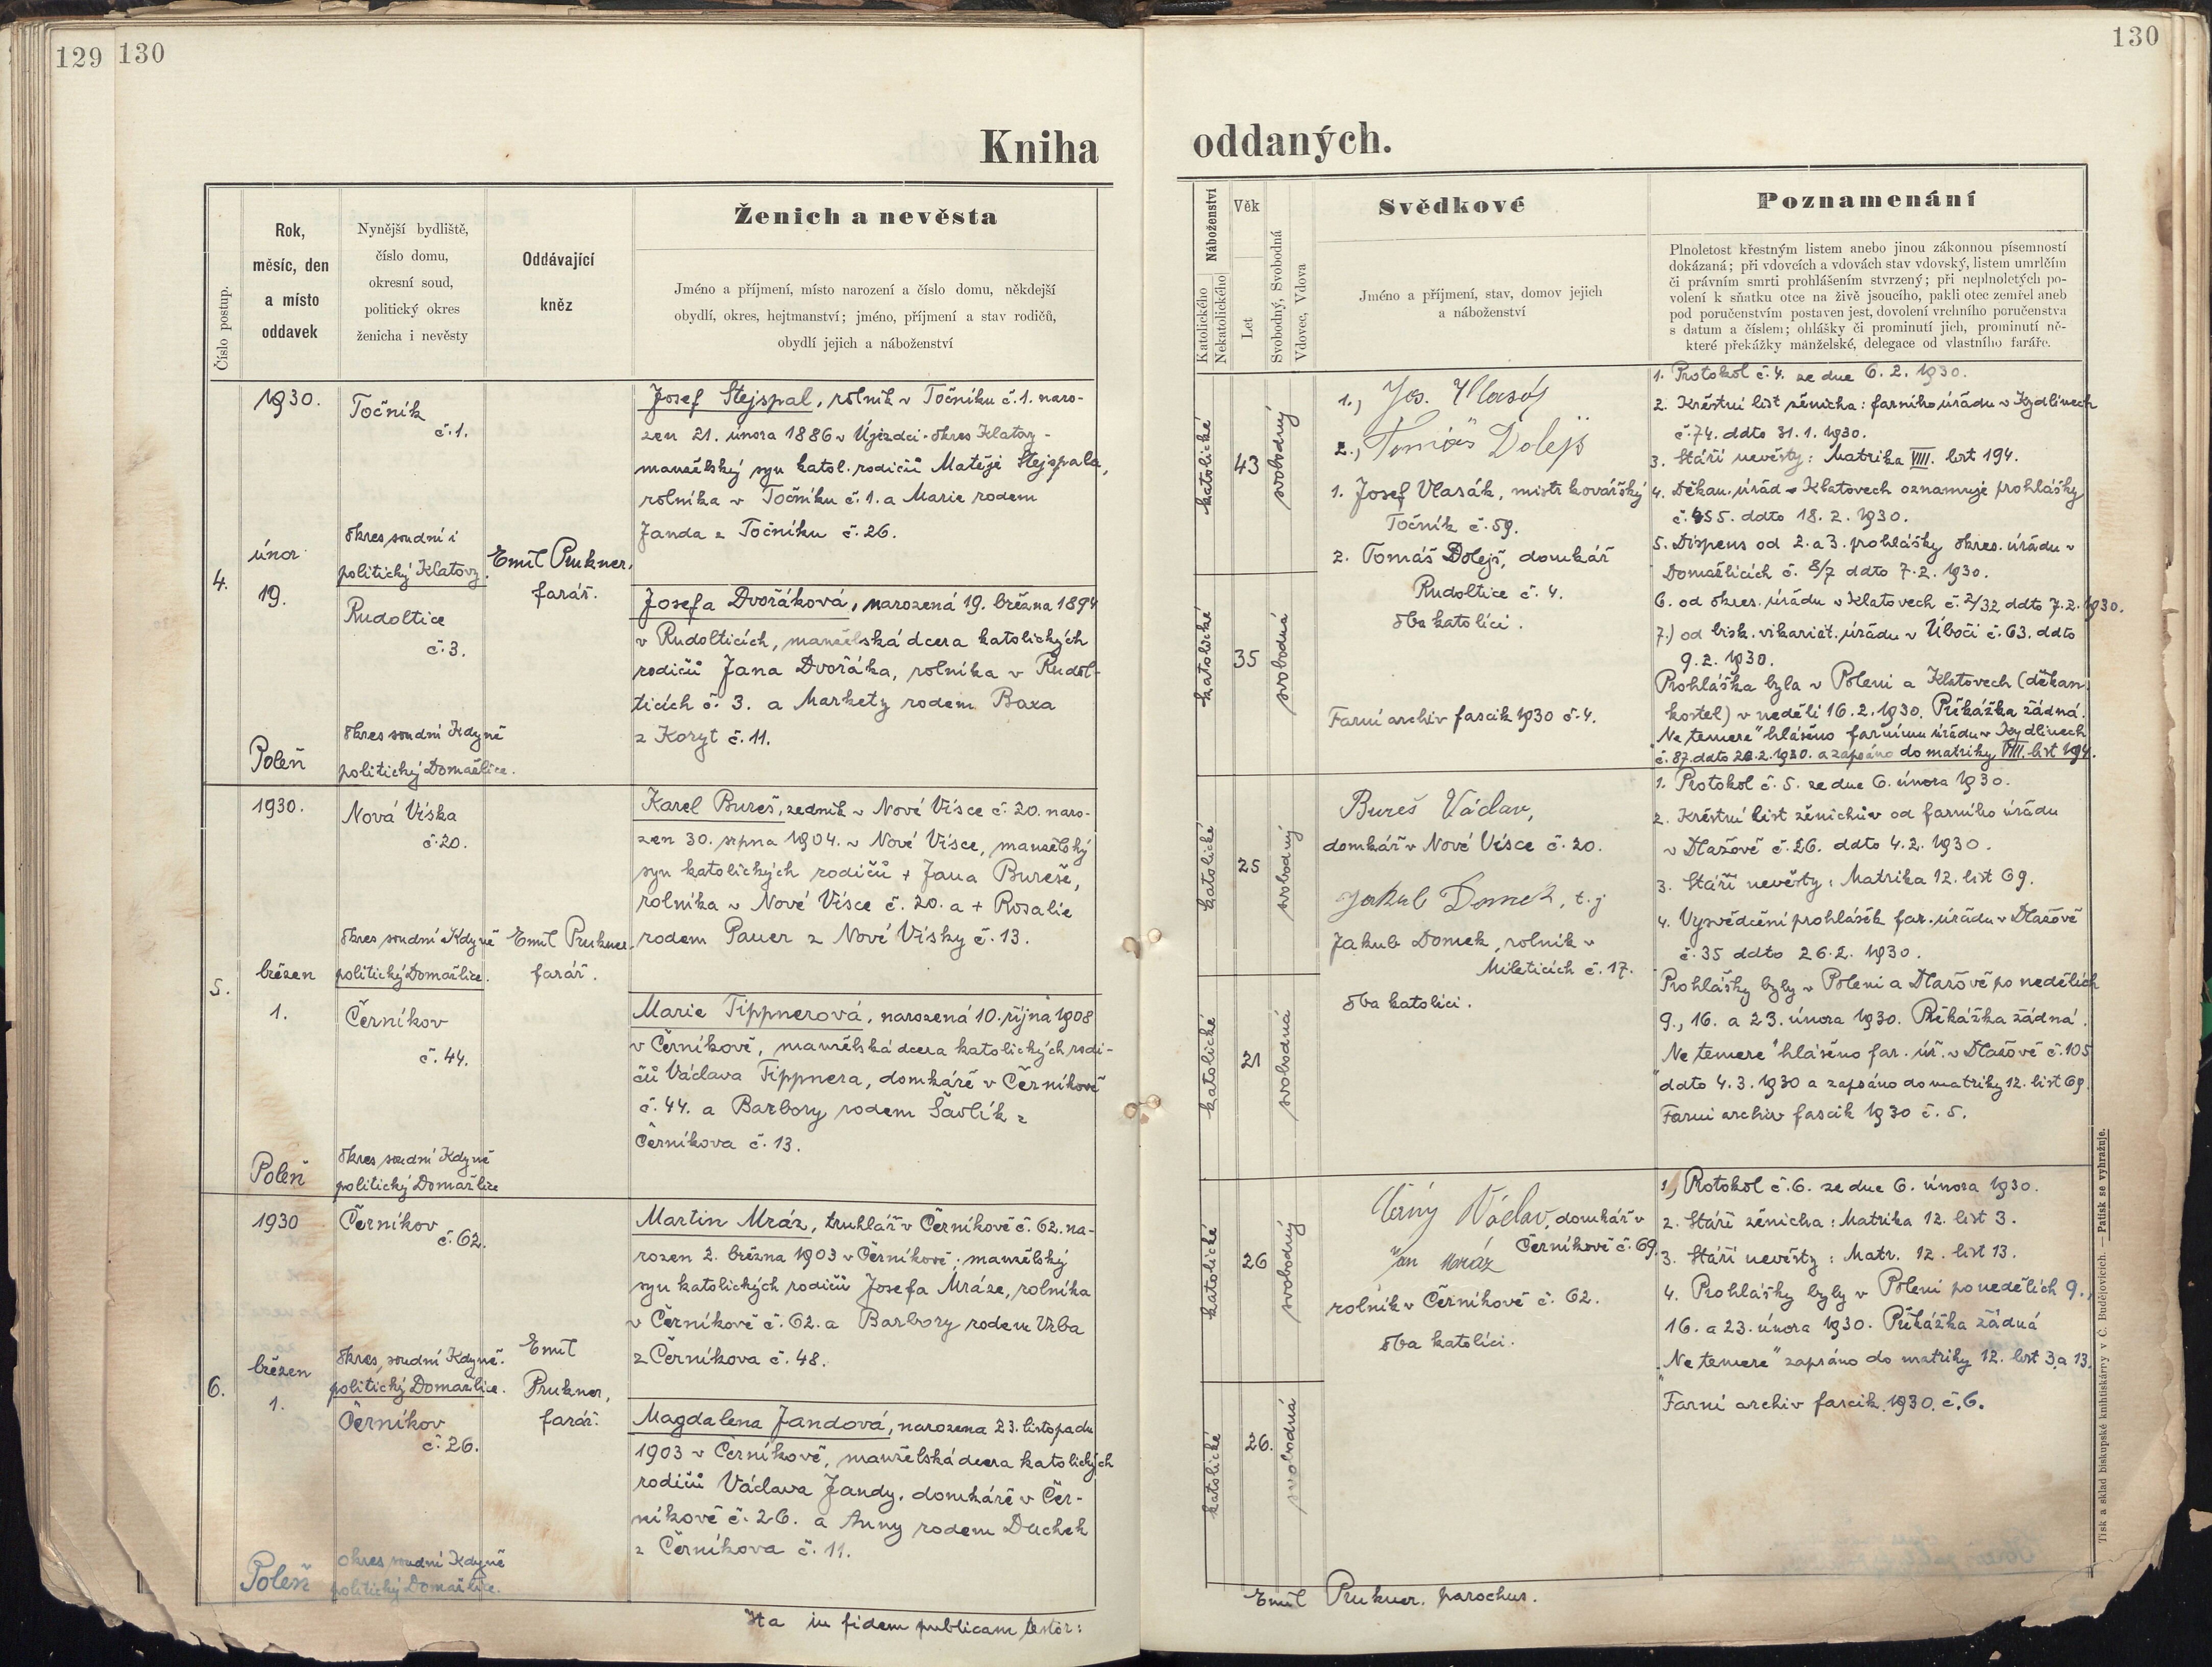 129 130
130
Kniha
oddaných.
Číslo postup.
Rok,
měsíc, den
a místo
oddavek
Nynější bydliště,
číslo domu,
okresní soud,
politický okres
ženicha i nevěsty
Oddávající
kněz
Ženich a nevěsta
Jméno a příjmení, místo narození a číslo domu, někdejší
obydlí, okres, hejtmanství; jméno, příjmení a stav rodičů,
obydlí jejich a náboženství
4.
1930.
únor
19.
Poleň
Točník
č.1.
okres soudní i
politický Klatovy.
Rudoltice
č.3.
okres soudní Kdyně
politický Domažlice.
Emil Prukner,
farář.
Josef Stejspal, rolník v Točníku č.1. naro-
zen 21. února 1886 v Újezdci-okres Klatovy-
manželský syn katol. rodičů Matěje Stejspala,
rolníka v Točníku č.1. a Marie rodem
Janda z Točníku č.26.
Josefa Dvořáková, narozená 19. března 1894
v Rudolticích, manželská dcera katolických
rodičů Jana Dvořáka, rolníka v Rudol-
ticích č. 3. a Markety rodem Baxa
z Koryt č.11.
5.
1930.
březen
1.
Poleň
Nová Víska
č.20.
okres soudní Kdyně
politický Domažlice.
Černíkov
č.44.
okres soudní Kdyně
politický Domažlice
Emil Prukner,
farář.
Karel Bureš, zedník v Nové Vísce č.20. naro-
zen 30. srpna 1904. v Nové Vísce, manželský
syn katolických rodičů + Jana Bureše,
rolníka v Nové Vísce č. 20. a + Rosalie
rodem Pauer z Nové Vísky č.13.
Marie Tippnerová, narozená 10. října 1908
v Černíkově, manželská dcera katolických rodi-
čů Václava Tippnera, domkáře v Černíkově
č.44. a Barbory rodem Šavlík z
Černíkova č.13.
6.
1930
březen
1.
Poleň
Černíkov
č.62.
okres soudní Kdyně.
politický Domažlice.
Černíkov
č.26.
okres soudní Kdyně
politický Domažlice.
Emil
Prukner,
farář.
Martin Mráz, truhlář v Černíkově č.62. na-
rozen 2. března 1903 v Černíkově; manželský
syn katolických rodičů Josefa Mráze, rolníka
v Černíkově č.62. a Barbory rodem Vrba
z Černíkova č.48.
Magdalena Jandová, narozena 23. listopadu
1903 v Černíkově, manželská dcera katolických
rodičů Václava Jandy, domkáře v Čer-
níkově č.26. a Anny rodem Duchek
z Černíkova č.11.
Ita in fidem publicam testor:
Náboženství
Katolického
Nekatolického
Věk
Let
Svobodný, Svobodná
Vdovec, Vdova
Svědkové
Jméno a příjmení, stav, domov jejich
a náboženství
Poznamenání
Plnoletost křestným listem anebo jinou zákonnou písemností
dokázaná; při vdovcích a vdovách stav vdovský, listem umrlčím
či právním smrti prohlášením stvrzený; při neplnoletých po-
volení k sňatku otce na živě jsoucího, pakli otec zemřel aneb
pod poručenstvím postaven jest, dovolení vrchního poručenstva
s datum a číslem; ohlášky či prominutí jich, prominutí ně-
které překážky manželské, delegace od vlastního faráře.
katolické
43
svobodný
katolické
35
svobodná
1., Jos. Vlasák
2., Tomáš Dolejš
1. Josef Vlasák, mistr kovářský
Točník č.59.
2. Tomáš Dolejš, domkář
Rudoltice č.4.
oba katolíci.
Farní archiv fascik 1930 č.4.
1. Protokol č.4. ze dne 6.2.1930.
2. Křestní list ženicha: farního úřadu v Kydlinech
č.74. ddto 31.1.1930.
3. Stáří nevěsty: Matrika VIII. list 194.
4. Děkan. úřad v Klatovech oznamuje prohlášky
č.455. ddto 18.2.1930.
5. Dispens od 2. a 3. prohlášky okres. úřadu v
Domažlicích č. 8/7 ddto 7.2.1930.
6. od okres. úřadu v Klatovech č.2/32 ddto 7.2.1930.
7.) od bisk. vikariát. úřadu v Úbočí č.63. ddto
9.2.1930.
Prohláška byla v Poleni a Klatovech (děkan.
kostel) v neděli 16.2.1930. Překážka žádná.
"Ne temere" hlášeno farnímu úřadu v Kydlinech
č.87. ddto 20.2.1930. a zapsáno do matriky VIII. list 194.
katolické
25
svobodný
katolické
21
svobodná
Bureš Václav,
domkář v Nové Vísce č.20.
Jakub Domek, t.j
Jakub Domek, rolník v
Mileticích č.17.
oba katolíci.
1. Protokol č.5. ze dne 6. února 1930.
2. Křestní list ženichův od farního úřadu
v Dlažově č.26. ddto 4.2.1930.
3. Stáří nevěsty: Matrika 12. list 69.
4. Vysvědčení prohlášek far. úřadu v Dlažově
č.35 ddto 26.2.1930.
Prohlášky byly v Poleni a Dlažově po nedělích
9., 16. a 23. února 1930. Překážka žádná.
"Ne temere" hlášeno far. úř. v Dlažově č.105
ddto 4.3.1930 a zapsáno do matriky 12. list 69.
Farní archiv fascik 1930 č.5.
katolické
26
svobodný
katolické
26.
svobodná
Černý Václav, domkář v
Černíkově č.69.
Jan Mráz
rolník v Černíkově č.62.
oba katolíci.
1, Protokol č.6. ze dne 6. února 1930.
2. Stáří ženicha: Matrika 12. list 3.
3. Stáří nevěsty: Matr. 12. list 13.
4. Prohlášky byly v Poleni po nedělích 9.,
16. a 23. února 1930. Překážka žádná
"Ne temere" zapsáno do matriky 12. list 3. a 13.
Farní archiv fascik. 1930. č.6.
Emil Prukner. parochus.
Tisk a sklad biskupské knihtiskárny v Č. Budějovicích. — Patisk se vyhražuje.